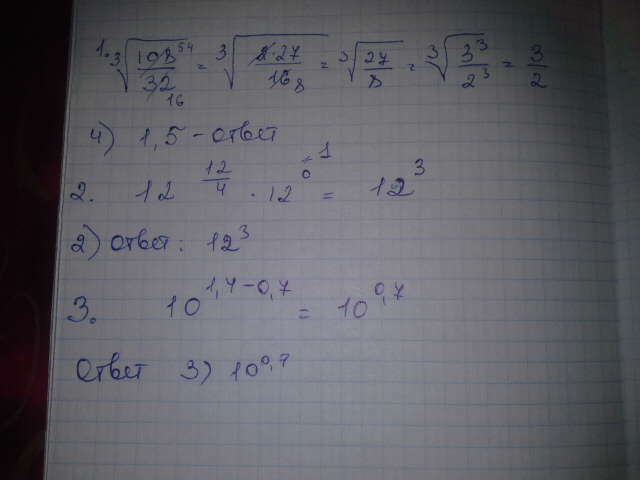 1. ∛(108/32) 54 16 = ∛(2·27/16) 8 = ∛(27/8) = ∛(3³/2³) = 3/2
4) 1,5 - ответ
2. 12^(12/4) · 12^0 =1 = 12³
2) ответ: 12³
3. 10^(1,4-0,7) = 10^0,7
Ответ 3) 10^0,7